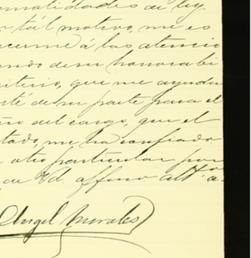 malidades de ley.
tal motivo, me es
ocurrir á las atencio
honorabi
que me ayuden
de su parte para el
ño del cargo, que el
tado, me ha confiado
otro particular por
de Vd. affmo
Angel Morales